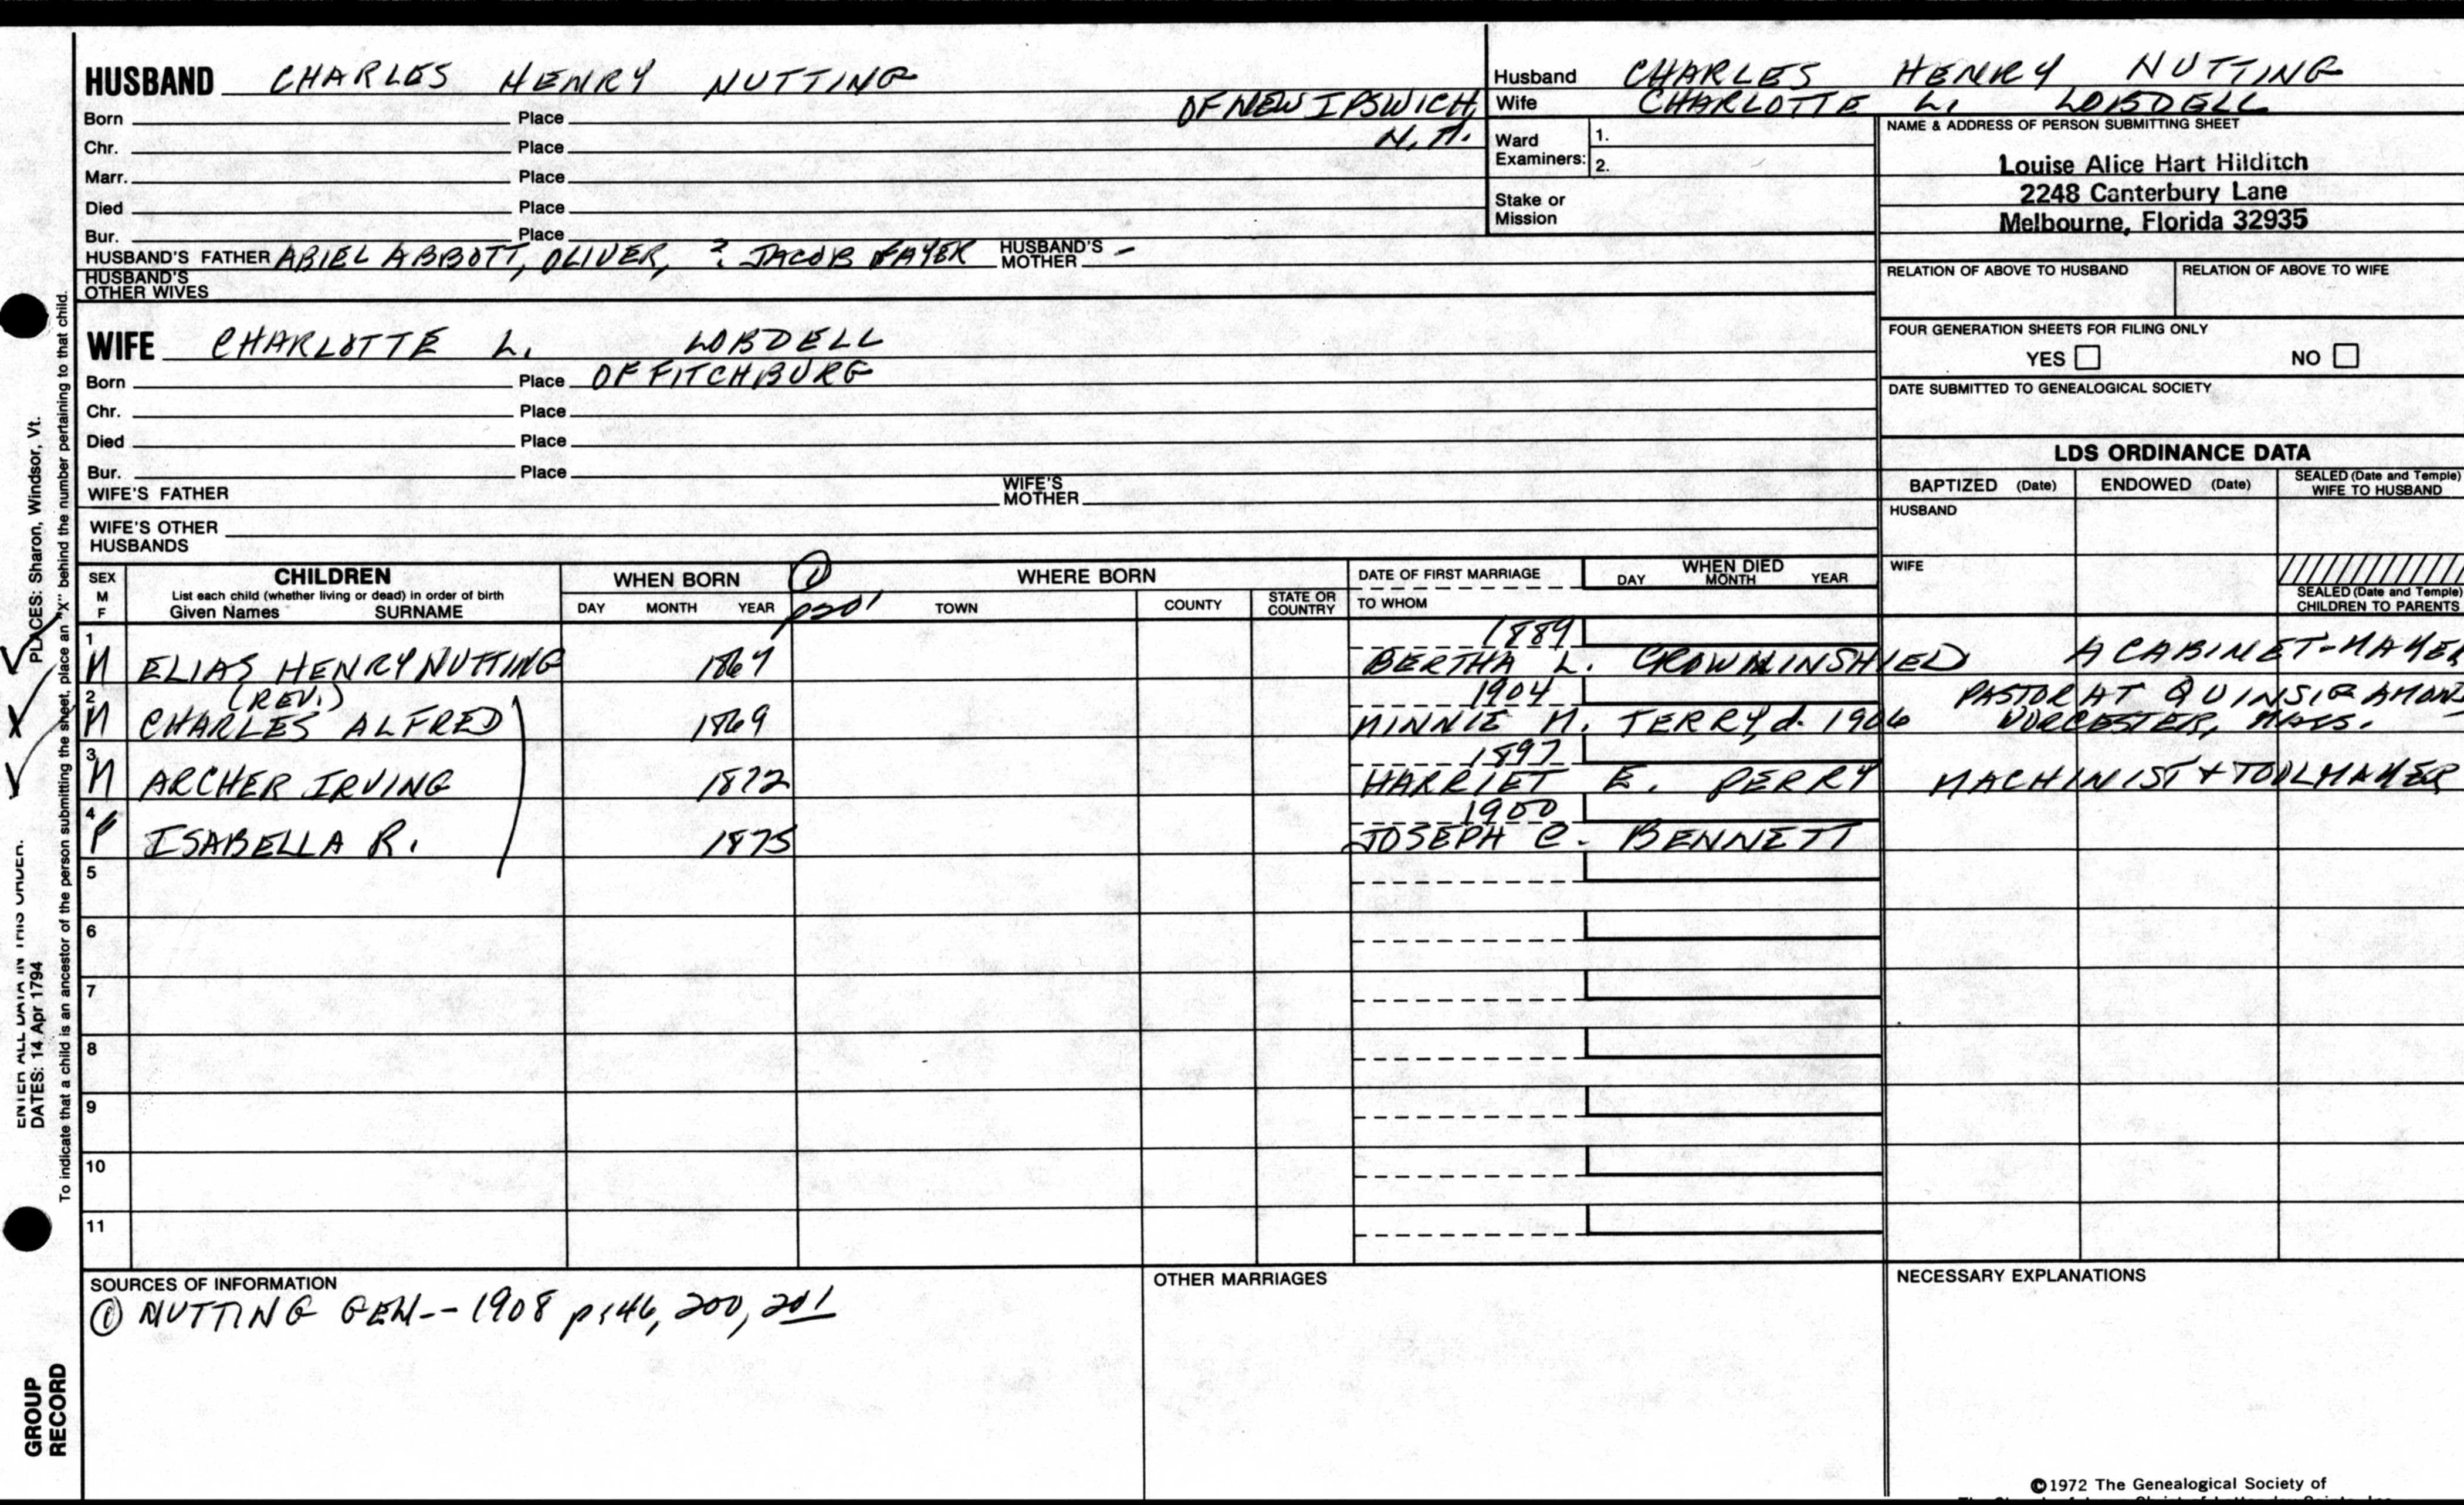 HUSBAND CHARLES HENRY NUTTING
Born Place OF NEW IPSWICH,
Chr. Place N.H.
Marr. Place
Died Place
Bur. Place
HUSBAND'S FATHER ABIEL ABBOTT, OLIVER, ? JACOB HUSBAND'S MOTHER -
HUSBAND'S OTHER WIVES
Husband CHARLES HENRY NUTTING
Wife CHARLOTTE L. LOBDELL
Ward Examiners: 1.
2.
Stake or Mission
NAME & ADDRESS OF PERSON SUBMITTING SHEET
Louise Alice Hart Hilditch
2248 Canterbury Lane
Melbourne, Florida 32935
RELATION OF ABOVE TO HUSBAND RELATION OF ABOVE TO WIFE
FOUR GENERATION SHEETS FOR FILING ONLY
YES NO
DATE SUBMITTED TO GENEALOGICAL SOCIETY
WIFE CHARLOTTE L. LOBDELL
Born Place OF FITCHBURG
Chr. Place
Died Place
Bur. Place
WIFE'S FATHER WIFE'S MOTHER
WIFE'S OTHER HUSBANDS
LDS ORDINANCE DATA
BAPTIZED (Date) ENDOWED (Date) SEALED (Date and Temple) WIFE TO HUSBAND
HUSBAND
WIFE
SEALED (Date and Temple) CHILDREN TO PARENTS
SEX M F
CHILDREN
List each child (whether living or dead) in order of birth
Given Names SURNAME
WHEN BORN
DAY MONTH YEAR
① p201
WHERE BORN
TOWN COUNTY STATE OR COUNTRY
DATE OF FIRST MARRIAGE
TO WHOM
WHEN DIED
DAY MONTH YEAR
1 1889
M ELIAS HENRY NUTTING 1867 BERTHA L. CROWNINSHIELD A CABINET-MAKER
2 (REV.) 1904 PASTOR AT QUINSIGAMOND
M CHARLES ALFRED 1869 MINNIE M. TERRY, d. 1906 WORCESTER, MASS.
3 1897
M ARCHER IRVING 1872 HARRIET E. PERRY MACHINIST + TOOLMAKER
4 1900
F ISABELLA R. 1875 JOSEPH C. BENNETT
5
6
7
8
9
10
11
SOURCES OF INFORMATION
① NUTTING GEN-- 1908 p146, 200, 201
OTHER MARRIAGES
NECESSARY EXPLANATIONS
©1972 The Genealogical Society of
PLACES: Sharon, Windsor, Vt.
ENTER ALL DATA IN THIS ORDER:
DATES: 14 Apr 1794
To indicate that a child is an ancestor of the person submitting the sheet, place an "X" behind the number pertaining to that child.
GROUP
RECORD